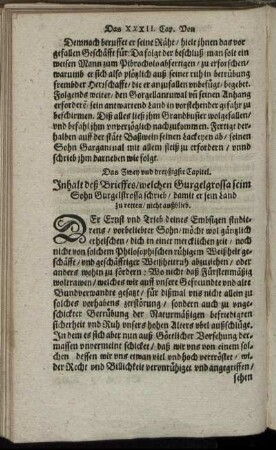 Das XXXII. Cap. Von
Demnach beruffet er seine Rähte / hielt jhnen das vor
gefallen Geschäfft für: Da folgt der beschluß: man solt ein
weisen Mann zum Pibrocholo abfertigen / zu erforschen /
warumb er sich also plötzlich auß seiner ruh in berrübung
frembder Herrschafft / die er anzufallen unbefüge / begebet.
Folgends weiter / den Gorgellanraual vñ seinen Anhang
erfordere / ein anwarrend Land in vorstehender gefahr zu
beschirmen. Diß alles ließ jhm Grandbusier wolgefallen /
und befahl jhm unverzüglich nachzukommen. Fertigt der-
halben auff der stätt Baßwein seinen Lackeyen ab / seinen
Sohn Gargantual mit allem fleiß zu erfordern / vnnd
schrieb jhm darneben wie folgt.
Das Zwey vnd dreyssigste Capitel.
Inhalt deß Brieffes / welchen Gurgelgrossa seim
Sohn Gurgelstrossa schrieb / damit er sein Land
zu retten / nicht außblieb.
DEr Ernst vnd Trieb deines Embsigen studie-
rens / vorbeliebter Sohn / möcht wol gänzlich
erheischen / dich in einer mercklichen zeit / noch
nicht von solchem Philosophischen ruhigem Weißheit ge-
schäfft / vnd geschäfftiger Weißheitruh abzuziehen / oder
anders wohin zu fördern: Wo nicht daß Fürstenmässig
woltrawen / welches wir auff unsere Gefreundte und alte
Bundverwandte gesetzt / für dißmal vns nicht allein zu
solches vorhabens zerstörung / sondern auch zu ange-
schickter Betrübung der Naturmässigen befredigten
sicherheit vnd Ruh vnsers hohen Alters vbel außschlüge.
In dem es sich aber nun auß Göttlicher Vorsehung der-
massen vnvermeint schicket / daß wir vns von einem sol-
chen dessen wir vns etwan viel vnd hoch vertröstet / wi-
der Recht vnd Billichkeit verunrühiget und angegriffen /
sehen